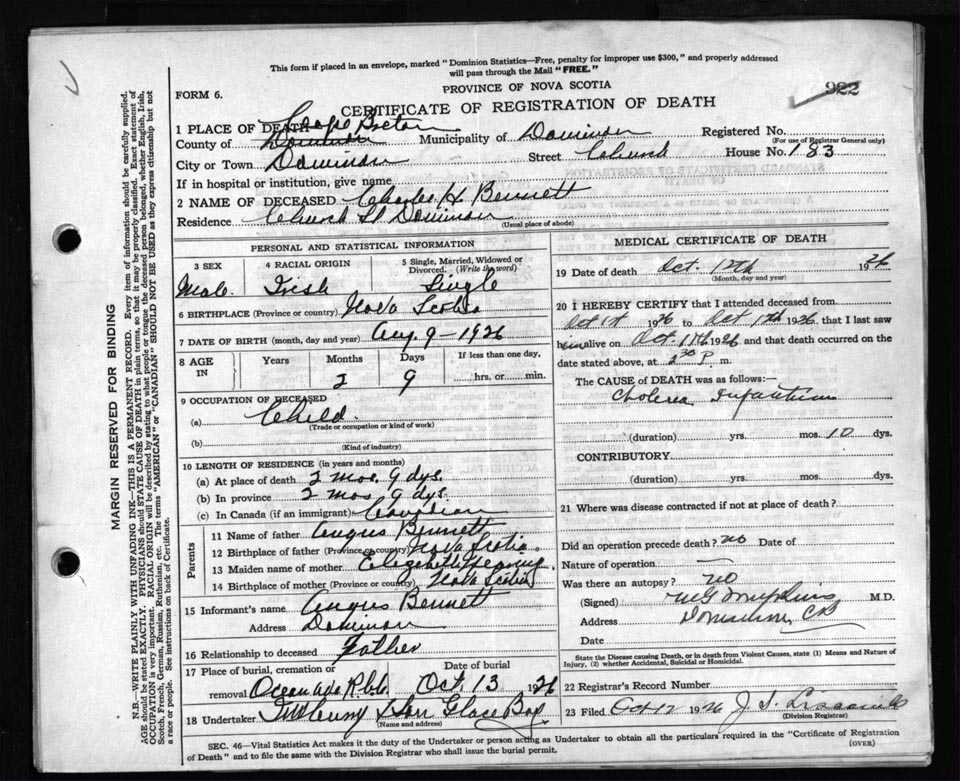 This form if placed in an envelope, marked "Dominion Statistics—Free, penalty for improper use $300," and properly addressed
will pass through the Mail "FREE."
PROVINCE OF NOVA SCOTIA
FORM 6.
922
CERTIFICATE OF REGISTRATION OF DEATH
1 PLACE OF DEATH Cape Breton
County of Dominion Municipality of Dominion Registered No.
(For use of Registrar General only)
City or Town Dominion Street Church House No. 183
If in hospital or institution, give name
2 NAME OF DECEASED Charles H. Bennett
Residence Church St Dominion
(Usual place of abode)
PERSONAL AND STATISTICAL INFORMATION
3 SEX 4 RACIAL ORIGIN 5 Single, Married, Widowed or
Divorced. (Write the word)
Male Irish Single
6 BIRTHPLACE (Province or country) Nova Scotia
7 DATE OF BIRTH (month, day and year) Aug 9-1926
8 AGE IN Years Months Days If less than one day,
2 9 hrs. or min.
9 OCCUPATION OF DECEASED
(a) Child
(Trade or occupation or kind of work)
(b)
(Kind of industry)
10 LENGTH OF RESIDENCE (in years and months)
(a) At place of death 2 mos. 9 dys.
(b) In province 2 mos 9 dys.
(c) In Canada (if an immigrant) Canadian
Parents
11 Name of father Angus Bennett
12 Birthplace of father (Province or country) Nova Scotia
13 Maiden name of mother Elizabeth
14 Birthplace of mother (Province or country) Nova Scotia
15 Informant's name Angus Bennett
Address Dominion
16 Relationship to deceased Father
17 Place of burial, cremation or Date of burial
removal Oct 13 1926
18 Undertaker Son Glace Bay
(Name and address)
MEDICAL CERTIFICATE OF DEATH
19 Date of death Oct. 17th 1926
(Month, day and year)
20 I HEREBY CERTIFY that I attended deceased from
Oct 1st 1926 to Oct 1926, that I last saw
him alive on Oct 11th 1926 and that death occurred on the
date stated above, at 2 30 P. m.
The CAUSE of DEATH was as follows:—
Cholera Infantum
(duration) yrs. mos. 10 dys.
CONTRIBUTORY
(duration) yrs. mos. dys.
21 Where was disease contracted if not at place of death?
Did an operation precede death? no Date of
Nature of operation —
Was there an autopsy? no
(Signed) M.D.
Address Dominion, CB
Date
State the Disease causing Death, or in death from Violent Causes, state (1) Means and Nature of
Injury, (2) whether Accidental, Suicidal or Homicidal.
22 Registrar's Record Number
23 Filed Oct 12 1926 J. S.
(Division Registrar)
SEC. 46—Vital Statistics Act makes it the duty of the Undertaker or person acting as Undertaker to obtain all the particulars required in the "Certificate of Registration
of Death" and to file the same with the Division Registrar who shall issue the burial permit. (OVER)
MARGIN RESERVED FOR BINDING
N.B.—WRITE PLAINLY WITH UNFADING INK—THIS IS A PERMANENT RECORD. Every item of information should be carefully supplied.
AGE should be stated EXACTLY. PHYSICIANS should STATE CAUSE OF DEATH in plain terms, so that it may be properly classified. Exact statement of
OCCUPATION is very important. RACIAL ORIGIN will be described by stating to what people or tongue the deceased person belonged, whether English, Irish,
Scotch, French, German, Russian, Ruthenian, etc. The terms "AMERICAN" or "CANADIAN" SHOULD NOT BE USED as they express citizenship but not
a race or people. See instructions on back of Certificate.